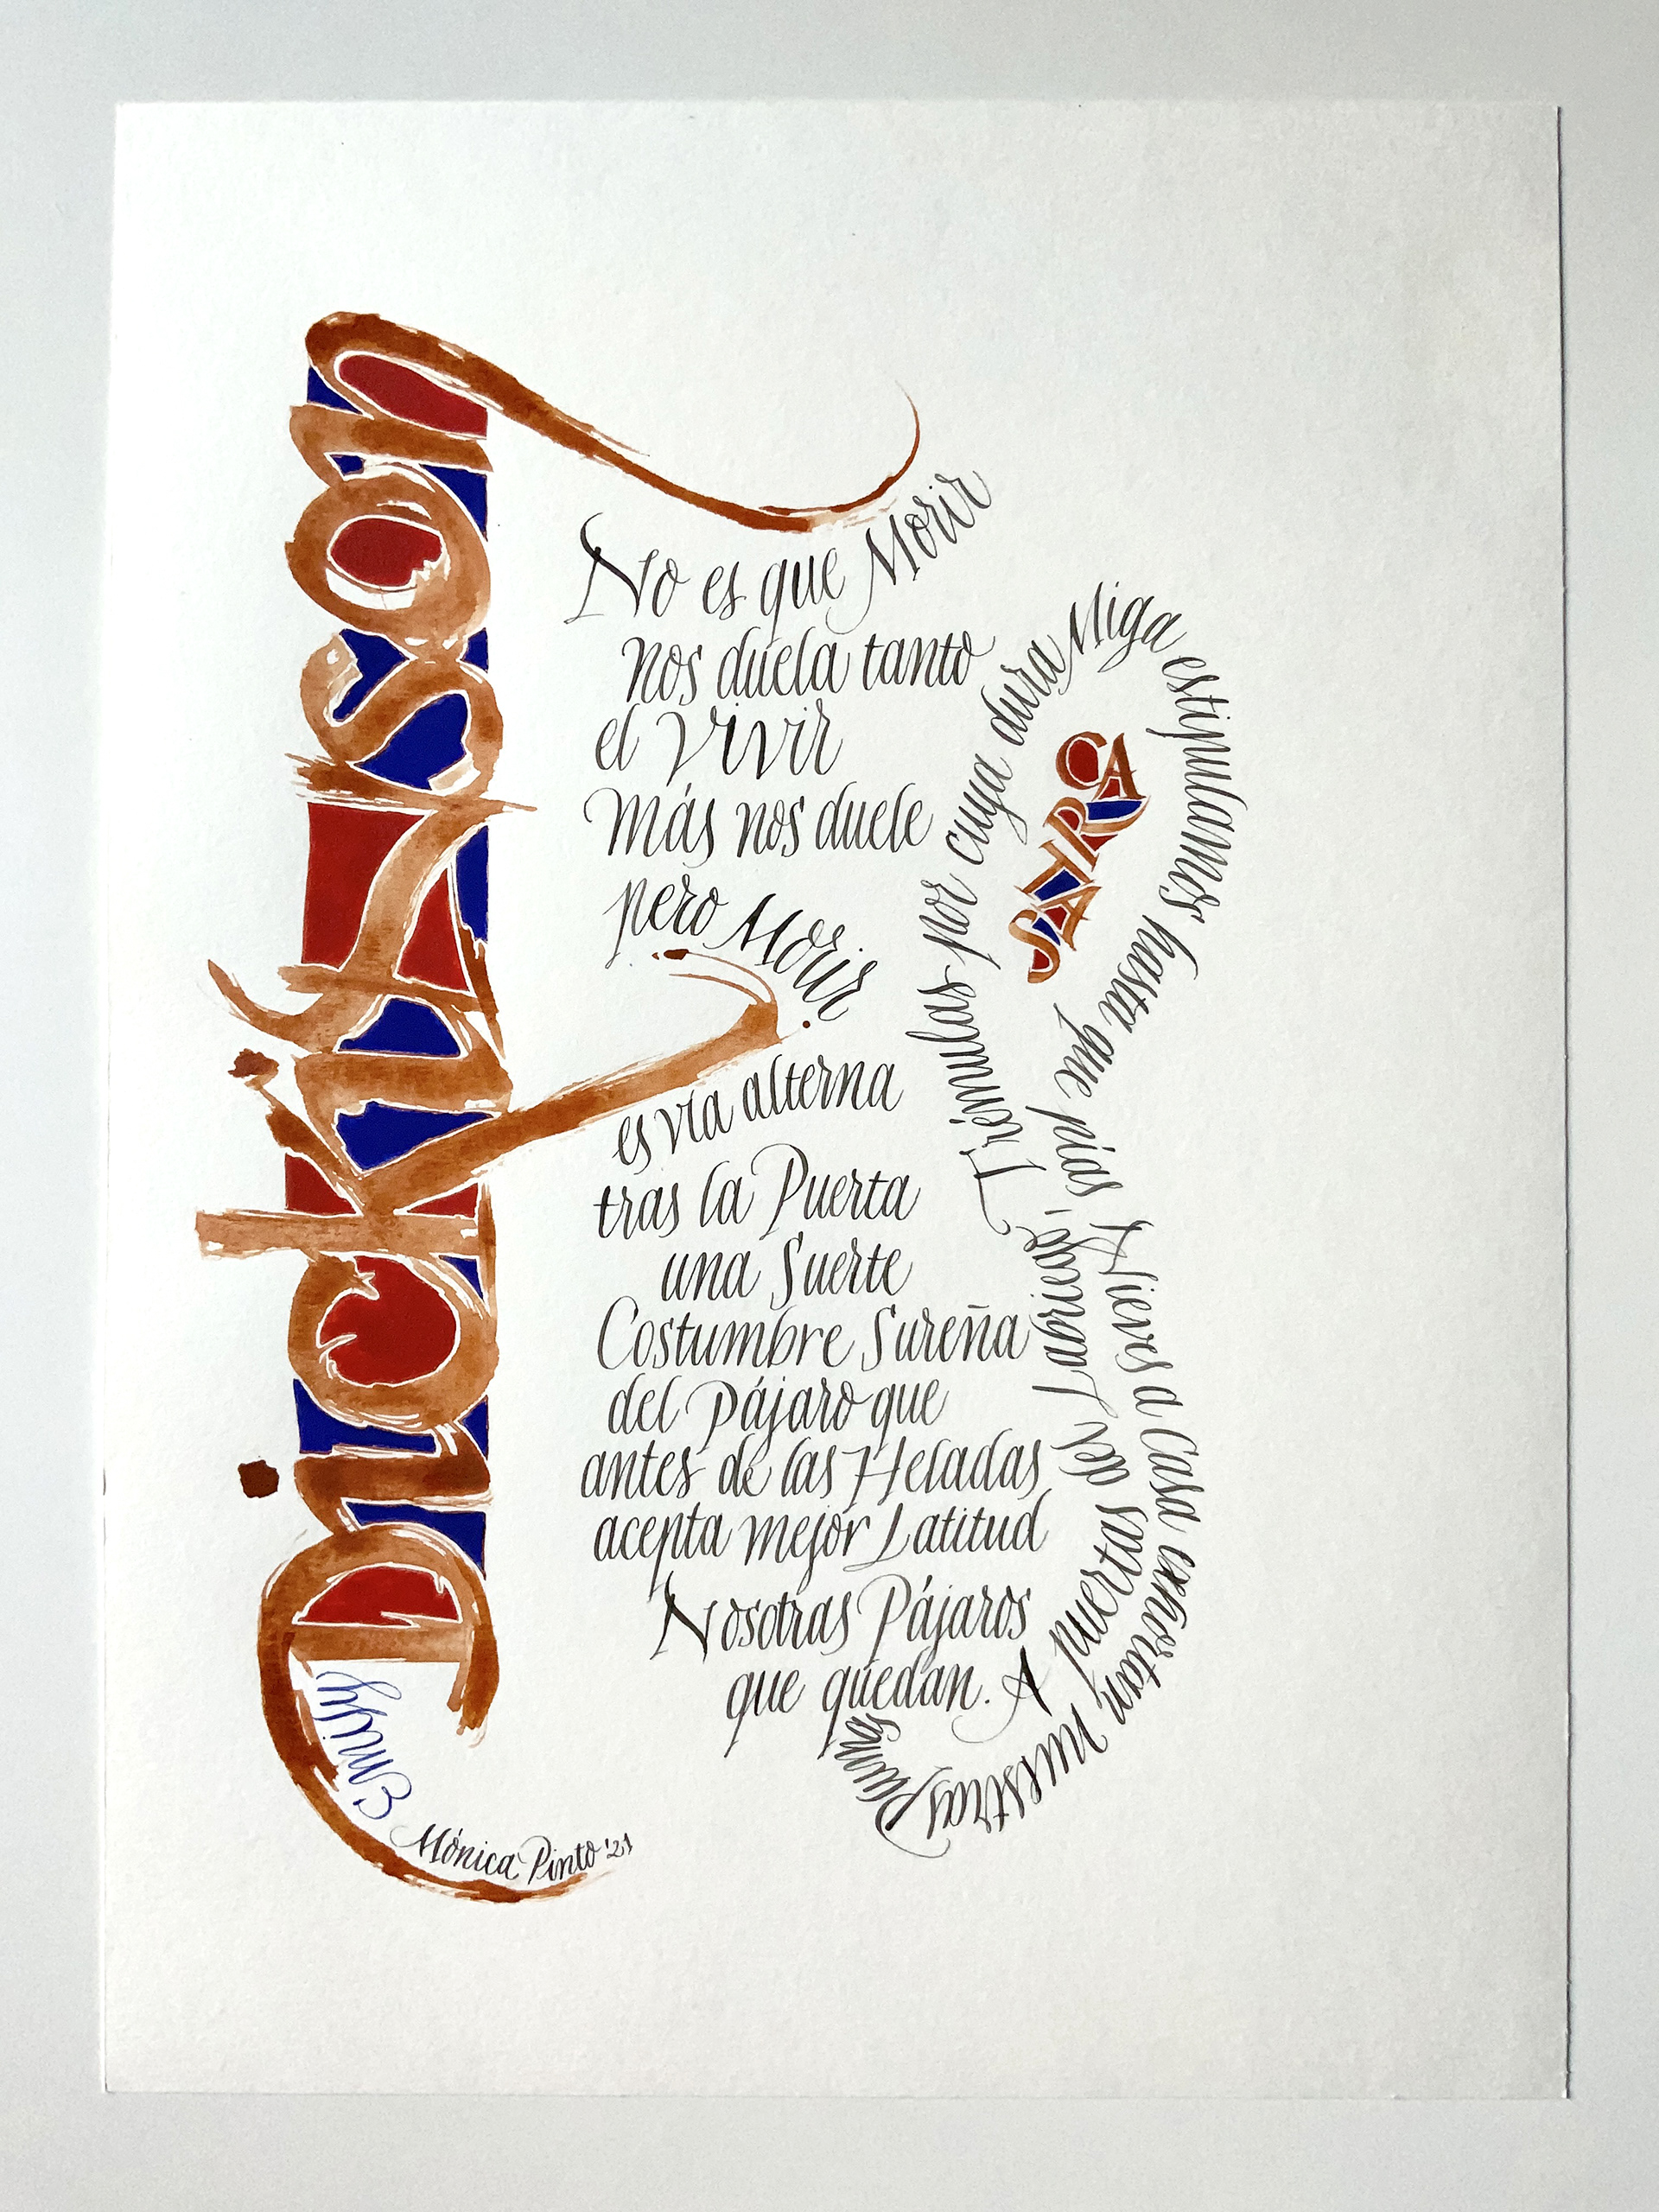 Dickinson
Emily
Mónica Pinto '21
No es que Morir
nos duela tanto
el Vivir
más nos duele
pero Morir
es vía alterna
tras la Puerta
una Suerte
Costumbre Sureña
del Pájaro que
antes de las Heladas
acepta mejor Latitud
Nosotras Pájaros
que quedan. A
puertas del Labriego,
Trémulas por cuya dura Miga estipulamos hasta que pías
Nieves a Casa exhortan nuestras Plumas